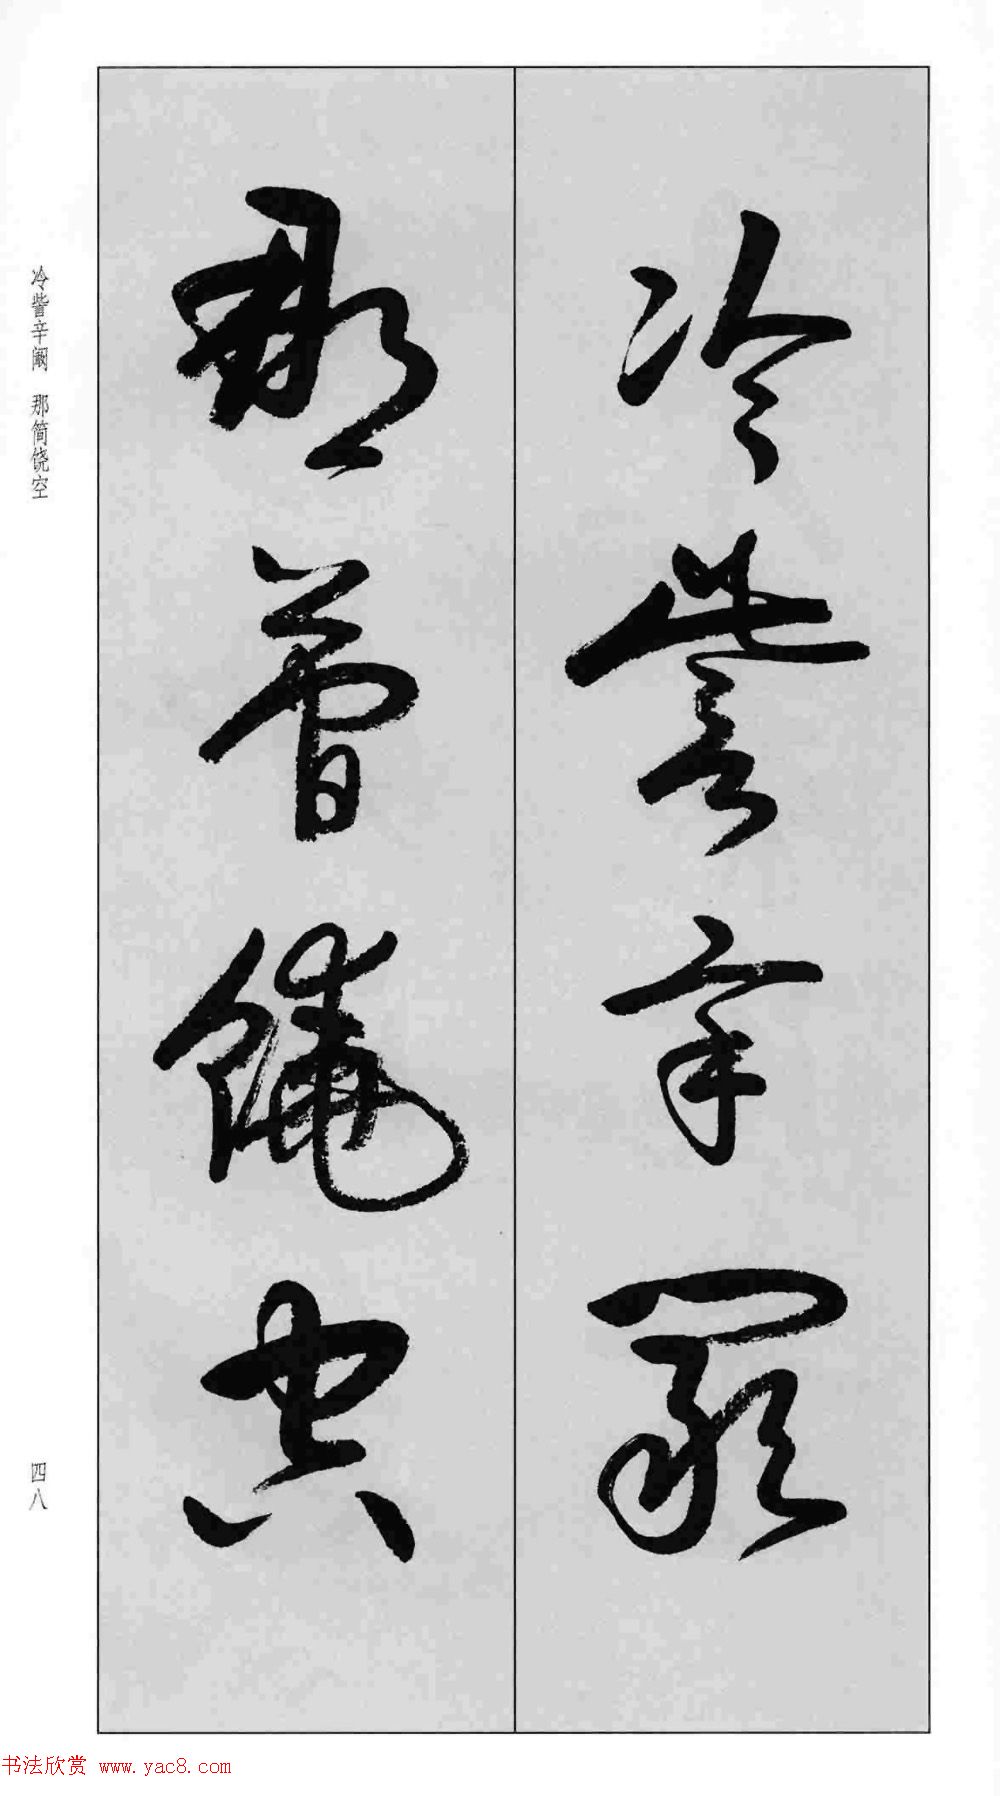 冷訾辛闞
那簡饒空
冷訾辛阚 那简饶空
四八
书法欣赏 www.yac8.com